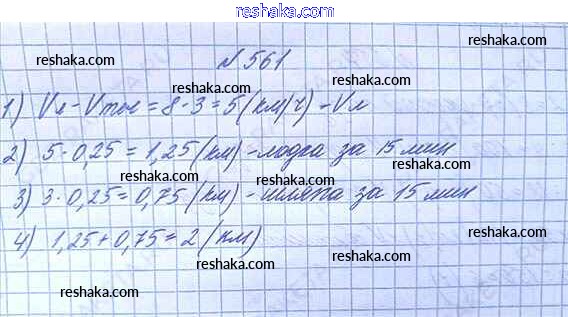 reshaka.com
reshaka.com
№561
reshaka.com
reshaka.com
1) Vл - Vтеч = 8 - 3 = 5 (км/ч) - Vл
reshaka.com
2) 5 · 0,25 = 1,25 (км) - лодка за 15 мин
reshaka.com
reshaka.com
reshaka.com
3) 3 · 0,25 = 0,75 (км) - шляпа за 15 мин
reshaka.com
4) 1,25 + 0,75 = 2 (км)
reshaka.com
reshaka.com
reshaka.com
reshaka.com